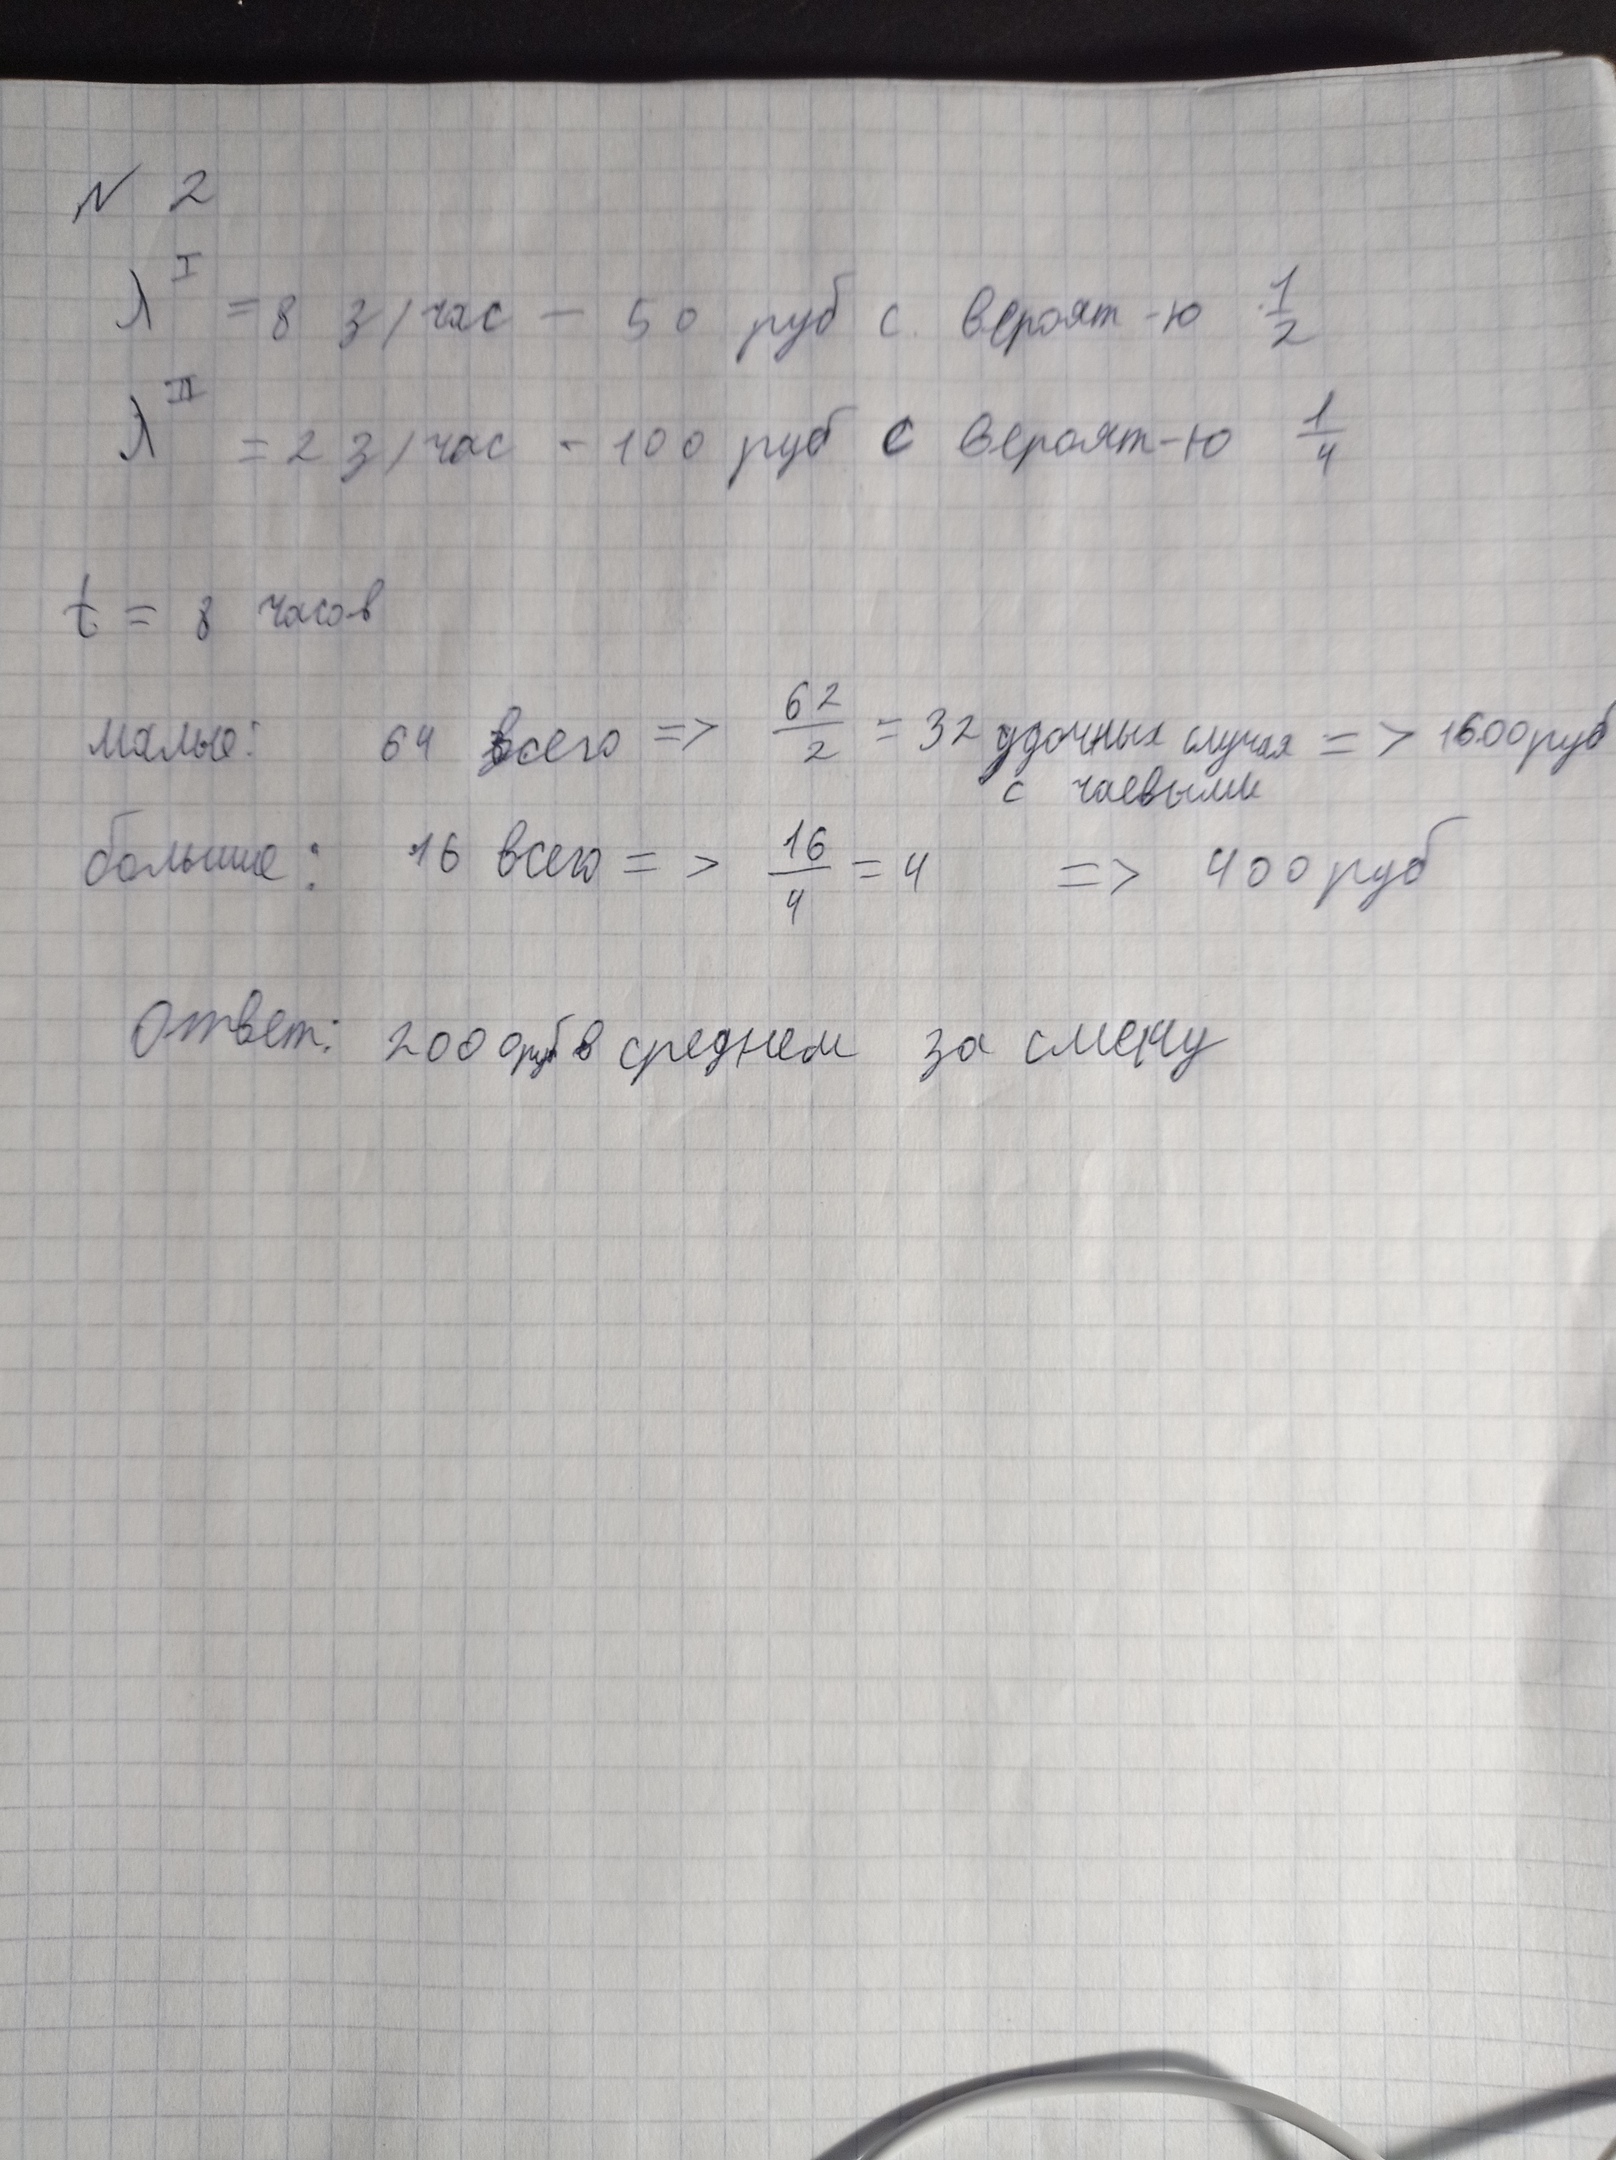 N 2
λ^I = 8 з/час - 50 руб с вероят-ю 1/2
λ^II = 2 з/час - 100 руб с вероят-ю 1/4
t = 8 часов
малые: 64 всего => 62/2 = 32 удочных случая => 1600 руб
с чаевыми
большие: 16 всего => 16/4 = 4 => 400 руб
Ответ: 2000 руб в среднем за смену